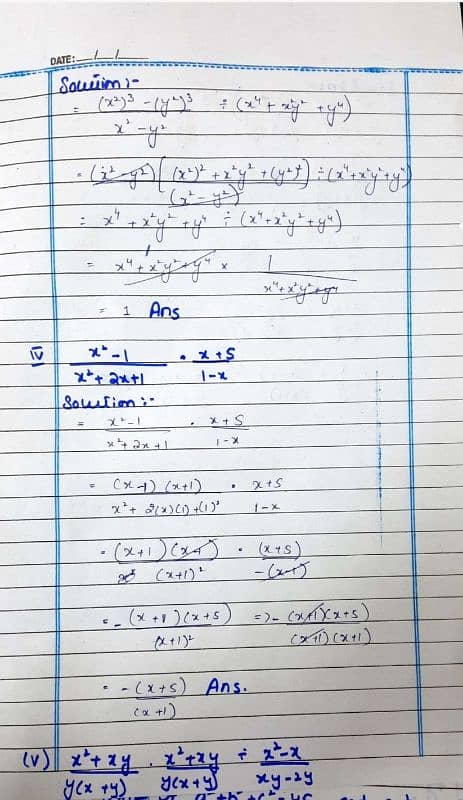 DATE: __/__/__
Solution :-
= (x²)³ - (y²)³ / x² - y² ÷ (x⁴ + x²y² + y⁴)
= (x² - y²) [(x²)² + x²y² + (y²)²] / (x² - y²) ÷ (x⁴ + x²y² + y⁴)
= x⁴ + x²y² + y⁴ ÷ (x⁴ + x²y² + y⁴)
= x⁴ + x²y² + y⁴ × 1 / x⁴ + x²y² + y⁴
= 1 Ans
iv x² - 1 / x² + 2x + 1 · x + 5 / 1 - x
Solution :-
= x² - 1 / x² + 2x + 1 · x + 5 / 1 - x
= (x - 1) (x + 1) / x² + 2(x)(1) + (1)² · x + 5 / 1 - x
= (x + 1) (x - 1) / (x + 1)² · (x + 5) / -(x - 1)
= - (x + 1) (x + 5) / (x + 1)² => - (x + 1)(x + 5) / (x + 1)(x + 1)
= - (x + 5) / (x + 1) Ans.
(v) x² + xy / y(x + y) · x² + xy / y(x + y) ÷ x² - x / xy - 2y